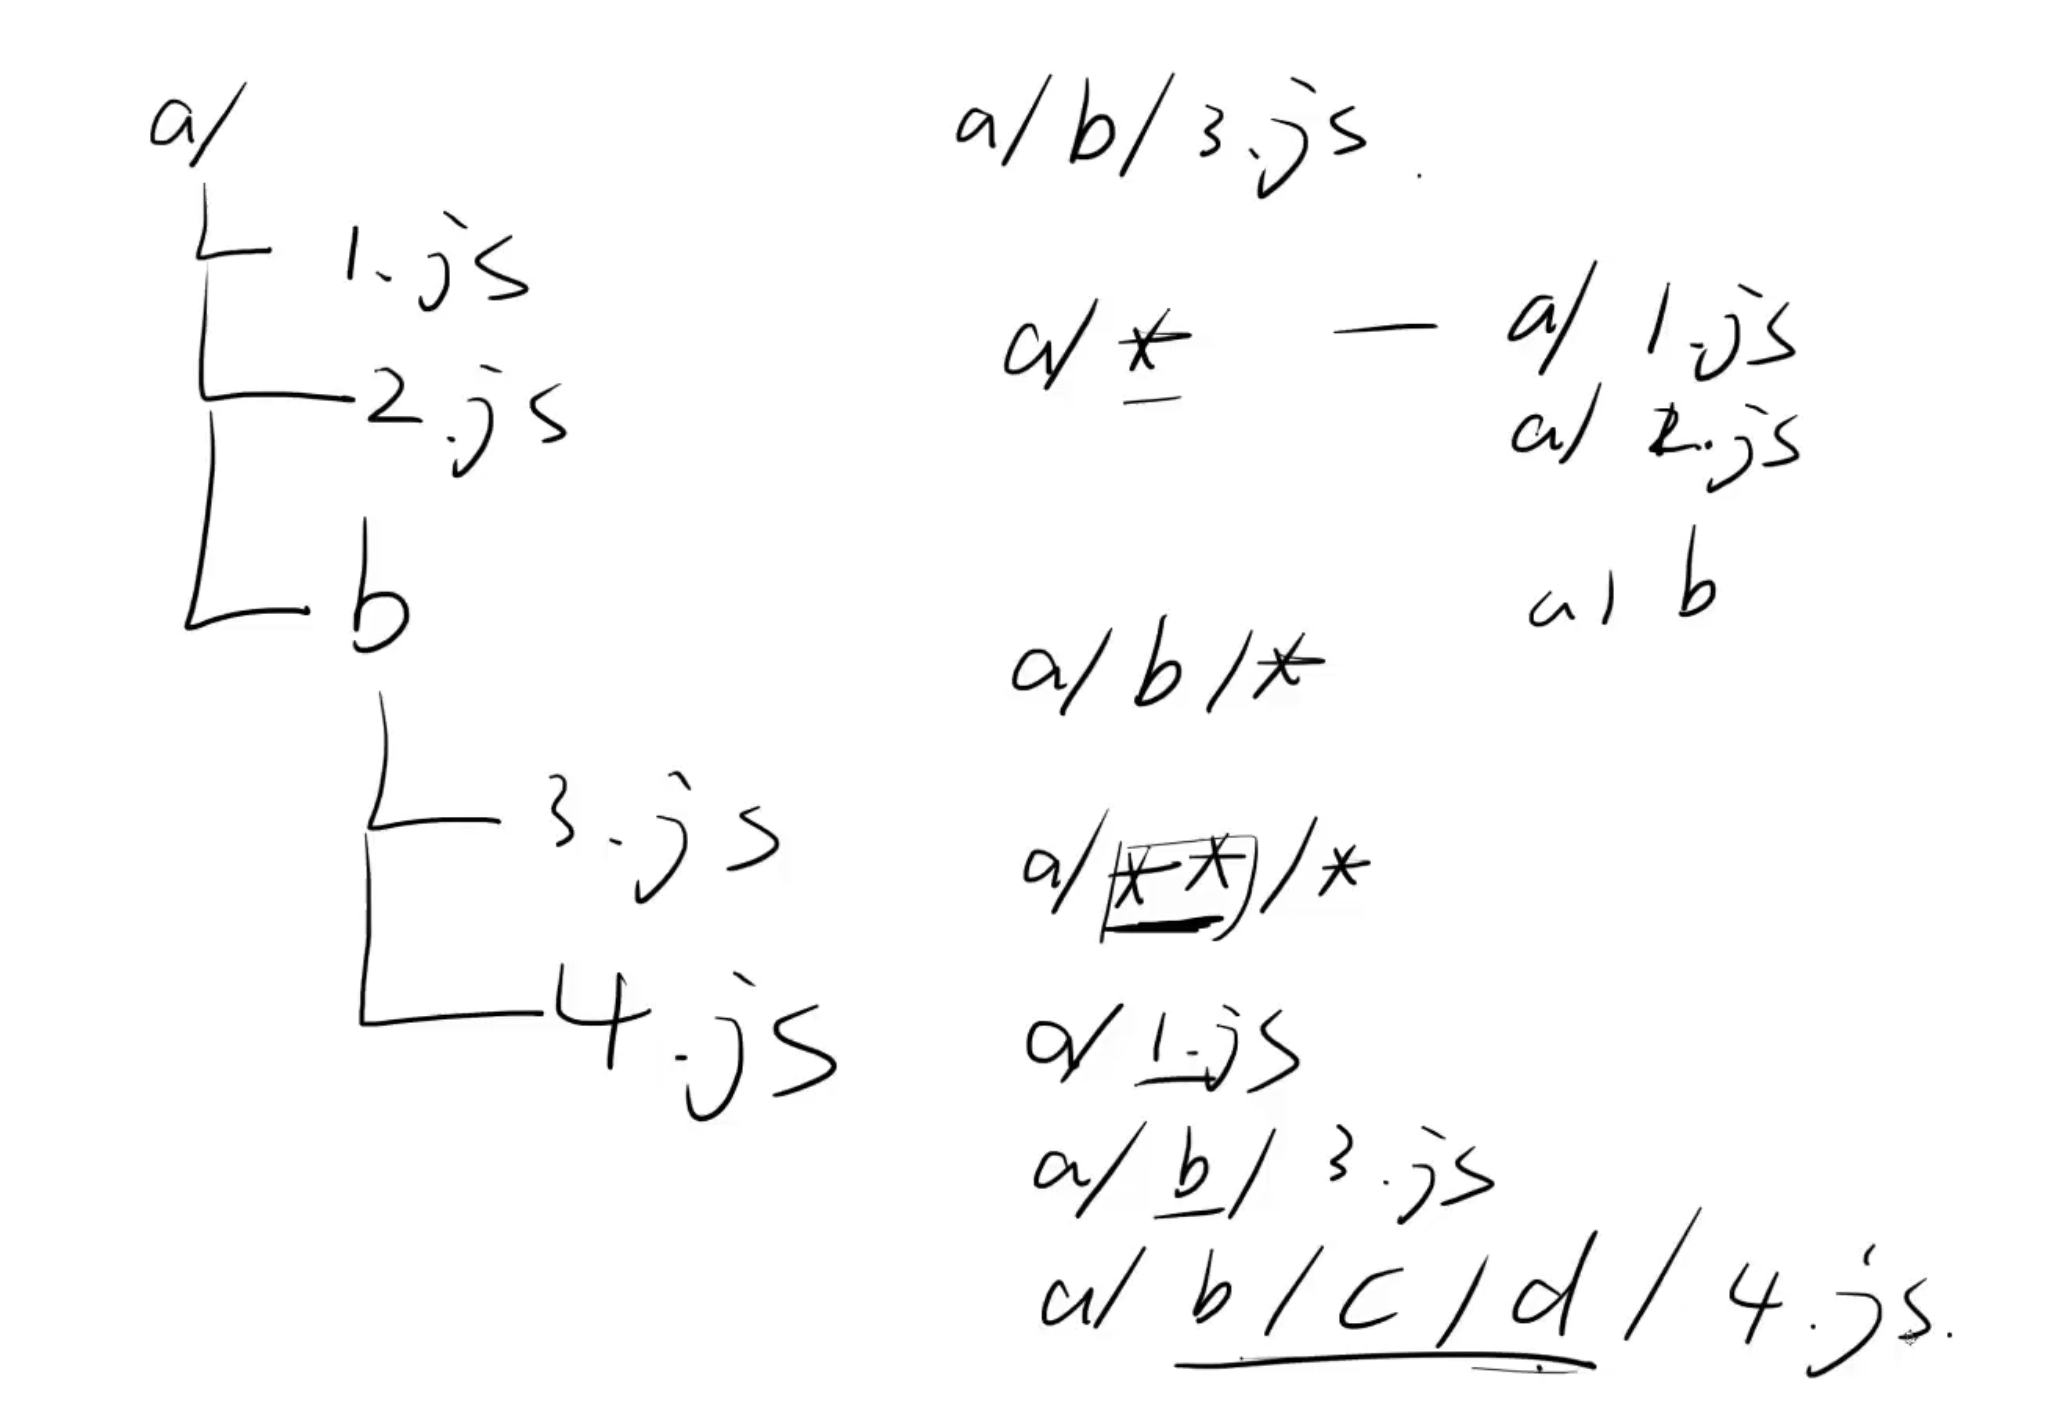 a/
1.js
2.js
b
3.js
4.js
a/b/3.js.
a/* — a/1.js
a/2.js
a/b
a/b/*
a/**/*
a/1.js
a/b/3.js
a/b/c/d/4.js.